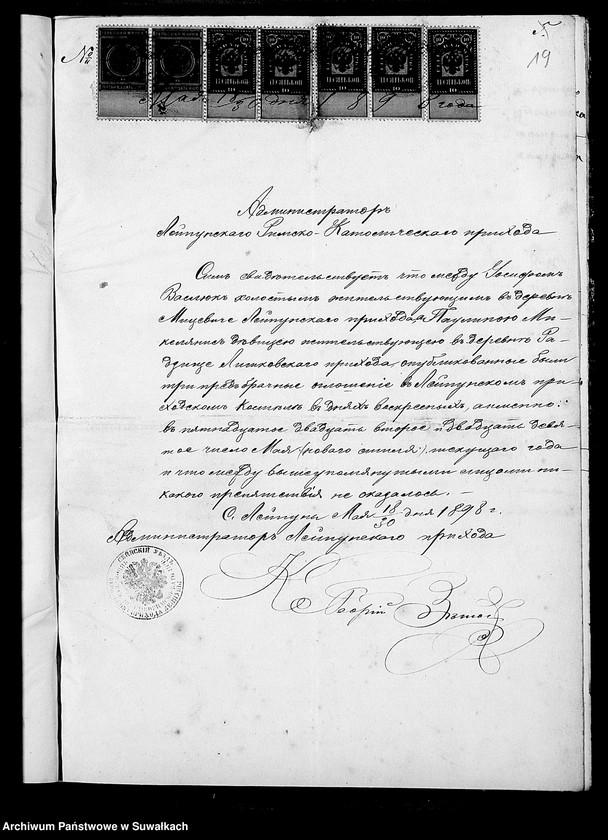 №
19
Мая 18/30 дня 1898 года
Администраторъ
Лейпунскаго Римско-Католическаго прихода
Симъ свидѣтельствуетъ что между Іосифомъ
Василюк холостымъ жительствующимъ въ деревнѣ
Мицевиче Лейпунскаго прихода, и Паулиною Ми-
келянис дѣвицею жительствующею въ деревнѣ Ра-
дзище Лишковскаго прихода, опубликованные были
три предбрачные оглошение въ Лейпунскомъ при-
ходскомъ костелѣ въ дняхъ воскресныхъ, а именно:
въ пятнадцатое двадцать второе и двадцать девя-
тое число Мая (новаго стиля) текущаго года
и что между вышеупомянутыми лицами ни-
какого препятствія не оказалось. —
С. Лейпуны Мая 18/30 дня 1898 г.
Администраторъ Лейпунскаго прихода
К Георгій
Archiwum Państwowe w Suwałkach